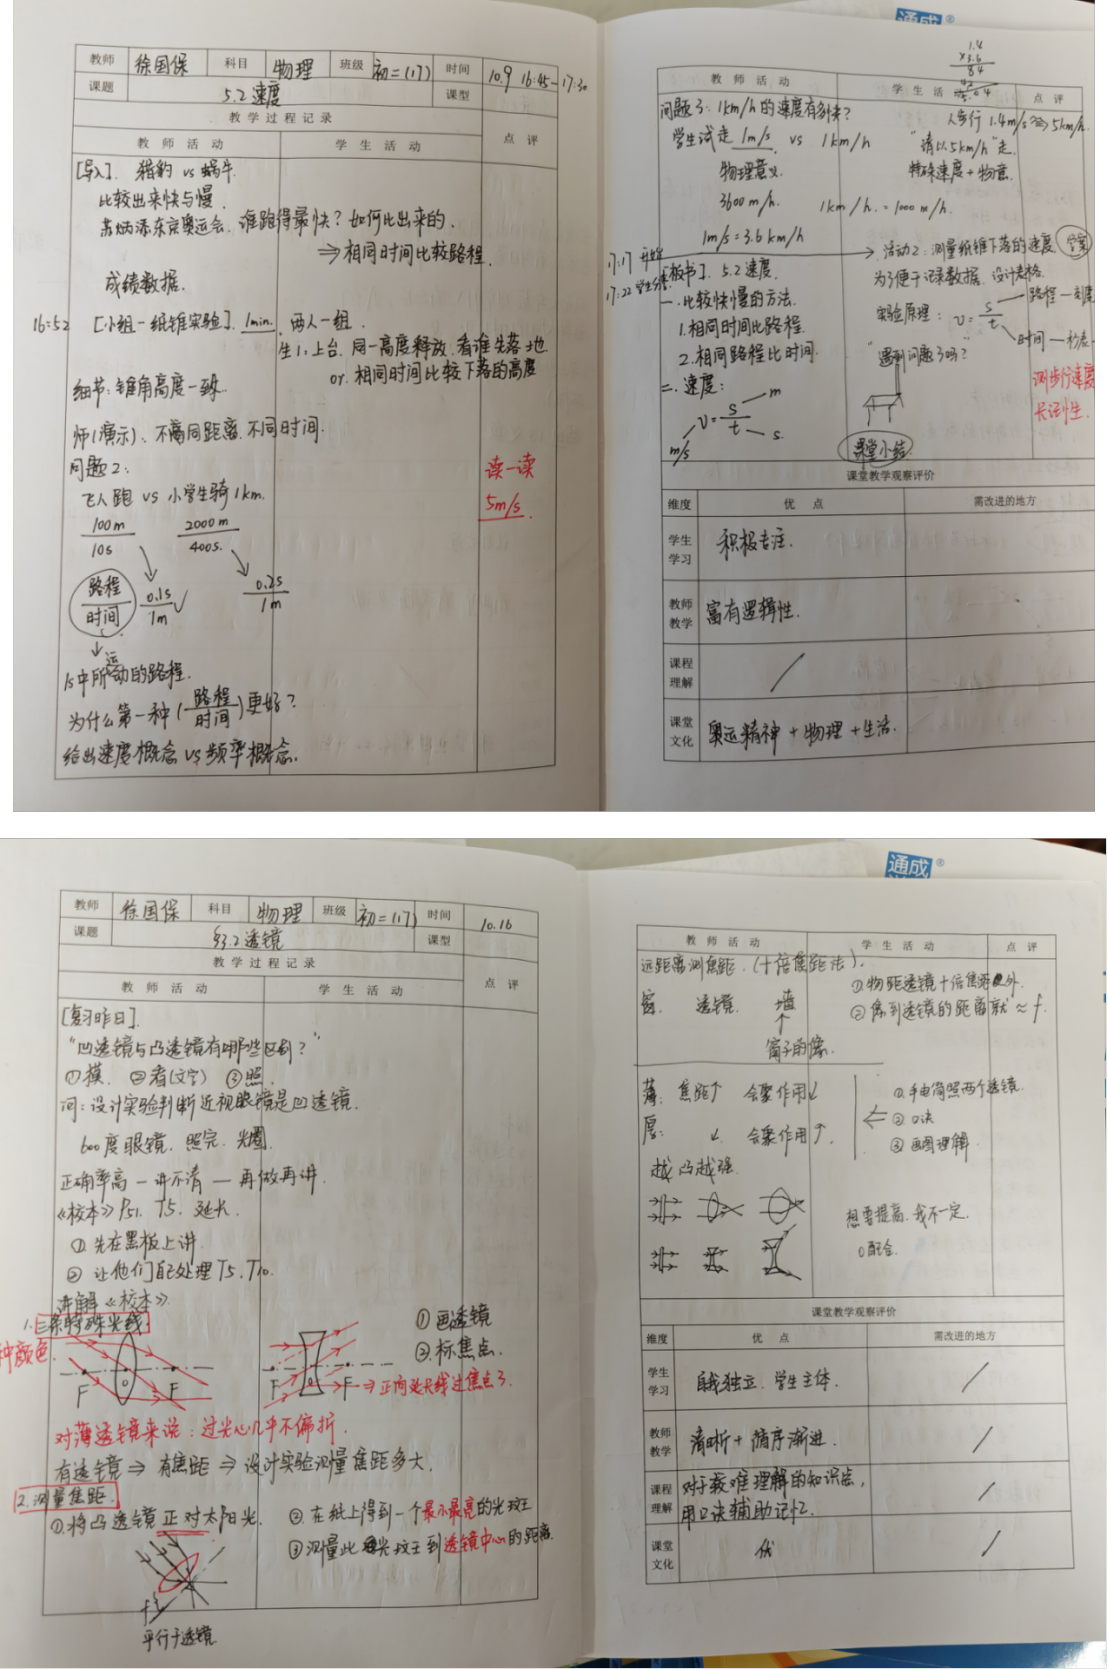 通成®
教师 徐国保 科目 物理 班级 初二(17) 时间 10.9 16:45-17:30
课题 5.2 速度 课型
教学过程记录
教师活动 学生活动 点评
[导入]. 猎豹 vs 蜗牛.
比较出来快与慢.
苏炳添东京奥运会. 谁跑得最快? 如何比出来的.
⇒ 相同时间比较路程.
成绩数据.
16:52 [小组-纸锥实验]. 1min. 两人一组.
生1: 上台. 同一高度释放. 看谁先落地
or. 相同时间比较下落的高度
细节: 锥角高度一致.
师(演示)、不同距离. 不同时间.
问题2:
飞人跑 vs 小学生骑1km.
读一读
5m/s.
100m/10s 2000m/400s.
路程/时间 0.1s/1m ✓ 0.2s/1m
1s中所运动的路程.
为什么第一种(路程/时间)更好?
给出速度概念 vs 频率概念.
1.4
×3.6
84
42
5.04
教师活动 学生活动 点评
问题3: 1km/h的速度有多快?
人步行 1.4m/s ⇒ 5km/h.
学生试走 1m/s vs 1km/h
"请以5km/h"走.
物理意义. 特殊速度+物意.
3600m/h. 1km/h. = 1000m/h.
1m/s = 3.6km/h
→ 活动2: 测量纸锥下落的速度. 学案
17:17 开始
17:22
[板书]. 5.2 速度.
为了便于记录数据. 设计表格.
一. 比较快慢的方法.
1. 相同时间比路程.
2. 相同路程比时间.
实验原理: v = s/t 路程一刻度
时间一秒表
"遇到问题了吗?"
二. 速度:
v = s/t m s.
m/s
测步行速度
课堂小结
课堂教学观察评价
维度 优点 需改进的地方
学生学习 积极专注.
教师教学 富有逻辑性.
课程理解 /
课堂文化 奥运精神 + 物理 + 生活.
通成®
教师 徐国保 科目 物理 班级 初二(17) 时间 10.16
课题 §3.2 透镜 课型
教学过程记录
教师活动 学生活动 点评
[复习昨日].
"凹透镜与凸透镜有哪些区别?"
①摸. ②看(文字) ③照.
问: 设计实验判断近视眼镜是凹透镜.
600度眼镜. 照完. 光圈.
正确率高 — 讲不清 — 再做再讲.
《校本》P51. T5. 延长.
① 先在黑板上讲.
② 让他们自己处理 T5. T10.
讲解《校本》
1. 三条特殊光线
种颜色.
F o F
F F ⇒ 正向延长线过焦点了.
① 画透镜
② 标焦点.
对薄透镜来说: 过光心几乎不偏折.
有透镜 ⇒ 有焦距 ⇒ 设计实验测量焦距多大.
2. 测量焦距.
①将凸透镜正对太阳光. ② 在纸上得到一个最小最亮的光斑
③ 测量此光斑到透镜中心的距离.
平行于透镜
教师活动 学生活动 点评
远距离测焦距. (十倍焦距法).
①物距透镜十倍焦距以外.
窗. 透镜. 墙
② 像到透镜的距离就 ≈ f.
↑
窗子的像.
薄: 焦距↑ 会聚作用↓
厚: ↓. 会聚作用↑.
① 手电筒照两个透镜.
⇐ ② 口诀
③ 画图理解.
越凸越强.
想要提高. 我不一定.
课堂教学观察评价
维度 优点 需改进的地方
学生学习 自我独立. 学生主体. /
教师教学 清晰 + 循序渐进. /
课程理解 对于较难理解的知识点, /
用口诀辅助记忆.
课堂文化 优 /